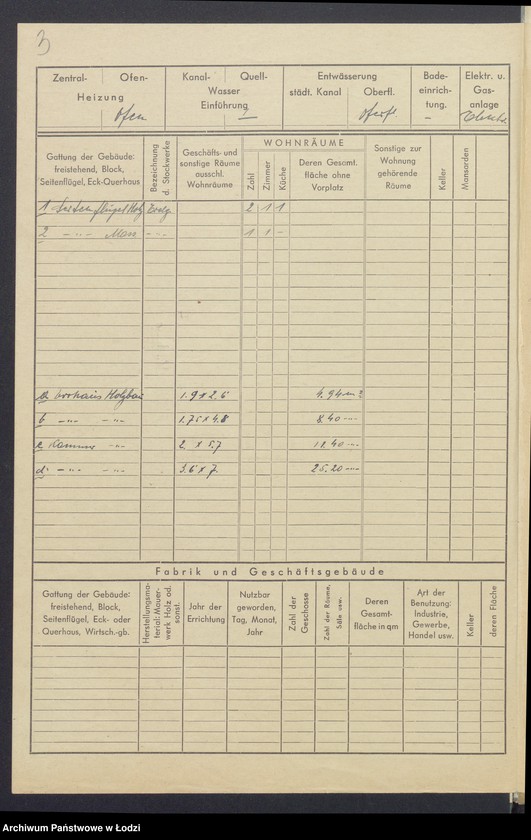 3
Zentral- Ofen-
Heizung
Ofen
Kanal- Quell-
Wasser
Einführung
—
Entwässerung
städt. Kanal Oberfl.
Oberfl
Bade-
einrich-
tung.
–
Elektr. u.
Gas-
anlage
Gattung der Gebäude:
freistehend, Block,
Seitenflügel, Eck-Querhaus
Bezeichnung
d. Stockwerke
Geschäfts- und
sonstige Räume
ausschl.
Wohnräume
WOHNRÄUME
Zahl
Zimmer
Küche
Deren Gesamt.
fläche ohne
Vorplatz
Sonstige zur
Wohnung
gehörende
Räume
Keller
Mansarden
1 Seitenflügel Holz 2 1 1
2 -"- 1 1 –
a Holzbau 1.9 x 2.6 4.94 m2
b -"- -"- 1.75 x 4.8 8.40 -"-
c -"- 2. x 5.7 -"-
d. -"- -"- 3.6 x 7. 25.20 -"-
Fabrik und Geschäftsgebäude
Gattung der Gebäude:
freistehend, Block,
Seitenflügel, Eck- oder
Querhaus, Wirtsch.-gb.
Herstellungsma-
terial: Mauer-
werk Holz od.
sonst.
Jahr der
Errichtung
Nutzbar
geworden,
Tag, Monat,
Jahr
Zahl der
Geschosse
Zahl der Räume,
Säle usw.
Deren
Gesamt-
fläche in qm
Art der
Benutzung:
Industrie,
Gewerbe,
Handel usw.
Keller
deren Fläche
Archiwum Państwowe w Łodzi